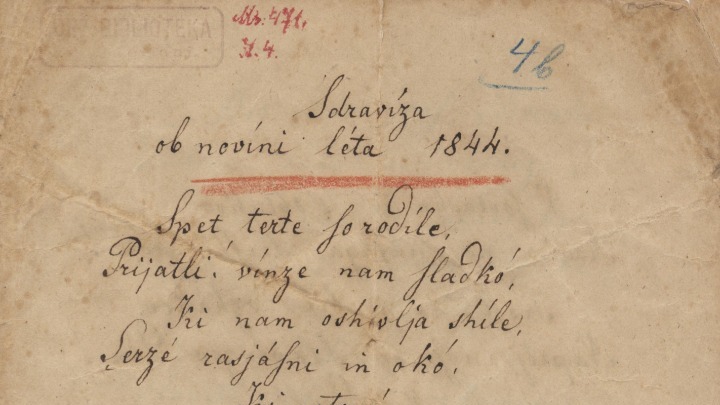 BIBLIOTEKA
Ms. 471.
4b
Sdravíza
ob novíni léta 1844.
Spet terte so rodíle,
Prijatli! vínze nam sladkó,
Ki nam oshívlja shíle,
Serzé rasjásni in okó.
Ki